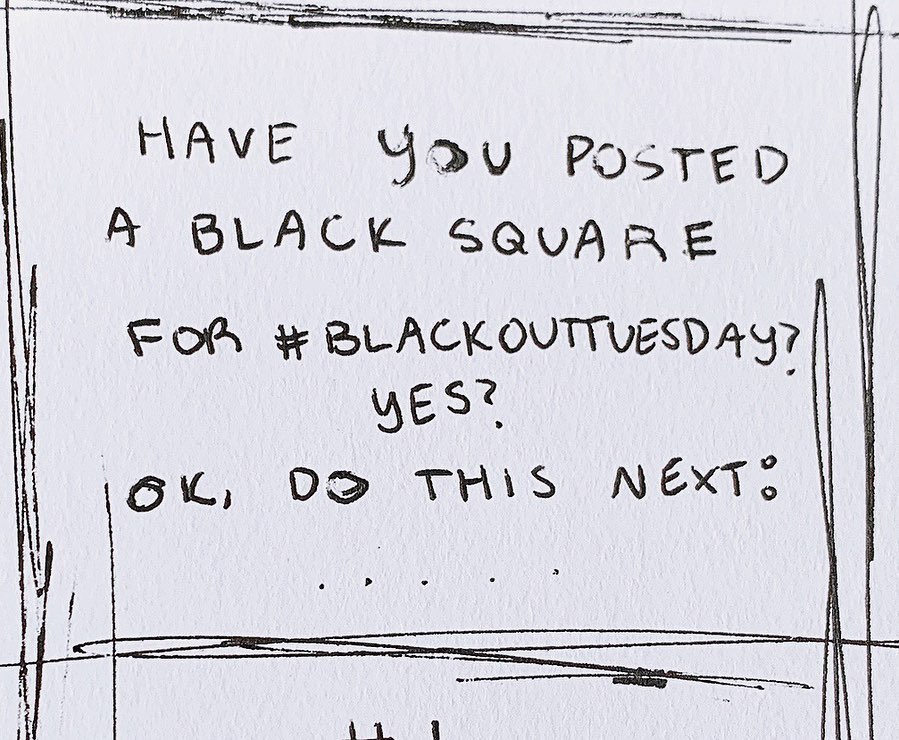 HAVE YOU POSTED
A BLACK SQUARE
FOR #BLACKOUTTUESDAY?
YES?
OK, DO THIS NEXT:
. . . . .